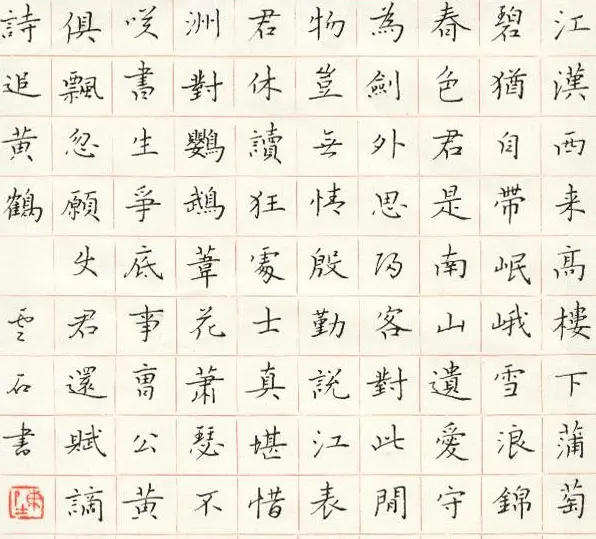 江漢西来高樓下蒲萄
碧猶自帶岷峨雪浪錦
春色君是南山遺愛守
為劍外思歸客對此閒
物豈無情殷勤說江表
君休讀狂處士真堪惜
洲對鸚鵡葦花蕭瑟不
咲書生爭底事曹公黃
俱飄忽願使君還賦謫
詩追黃鶴
雲石書